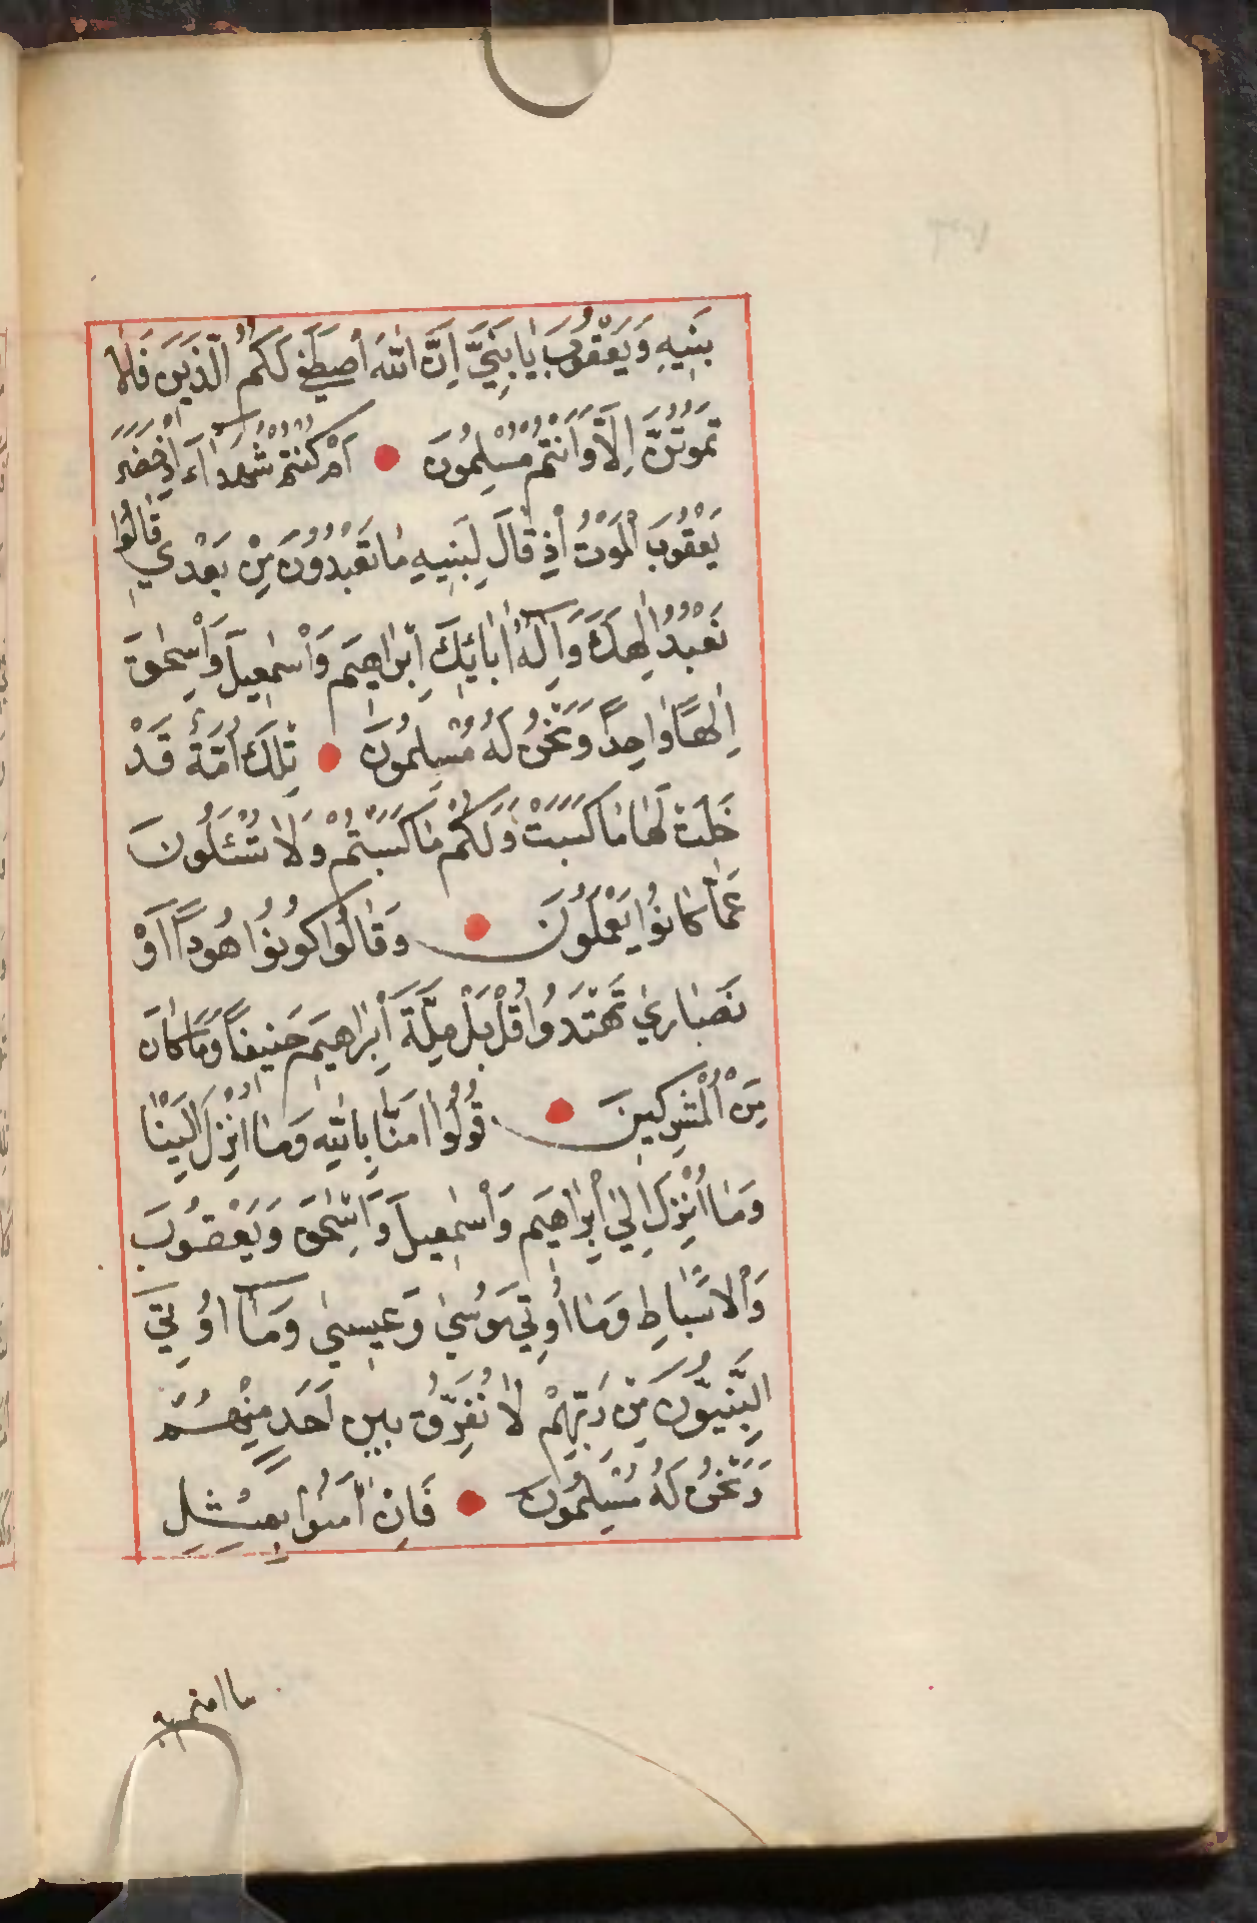 بَنِيهِ وَيَعْقُوبَ يَابَنِيَّ اِنَّ اللّٰهَ اصْطَفٰي لَكُمُ الّدِينَ فَلَا
تَمُوتُنَّ اِلَّا وَاَنْتُمْ مُسْلِمُونَ ● اَمْ كُنْتُمْ شُهَدَاۤءَ اِذْ حَضَرَ
يَعْقُوبَ الْمَوْتُ اِذْ قَالَ لِبَنِيهِ مٰا تَعْبُدُونَ مِنْ بَعْدِي قَالُوا
نَعْبُدُ اِلٰهَكَ وَاِلٰهَ اٰبَائِكَ اِبْرٰاهِيمَ وَاِسْمٰعِيلَ وَاِسْحٰقَ
اِلٰهًا وٰاحِدًا وَنَحْنُ لَهُ مُسْلِمُونَ ● تِلْكَ اُمَّةٌ قَدْ
خَلَتْ لَهٰا مٰا كَسَبَتْ وَلَكُمْ مٰا كَسَبْتُمْ وَلَا تُسْئَلُونَ
عَمّٰا كٰانُوا يَعْمَلُونَ ● وَقٰالُوا كُونُوا هُودًا اَوْ
نَصٰارٰي تَهْتَدُوا قُلْ بَلْ مِلَّةَ اِبْرٰهِيمَ حَنِيفًا وَمٰا كٰانَ
مِنَ الْمُشْرِكِينَ ● قُولُوا اٰمَنّٰا بِاللّٰهِ وَمٰا اُنْزِلَ اِلَيْنٰا
وَمٰا اُنْزِلَ اِلٰي اِبْرٰاهِيمَ وَاِسْمٰعِيلَ وَاِسْحٰقَ وَيَعْقُوبَ
وَالْاَسْبٰاطِ وَمٰا اُوتِيَ مُوسٰي وَعِيسٰي وَمٰاۤ اُوتِيَ
النَّبِيُّونَ مِنْ رَبِّهِمْ لٰا نُفَرِّقُ بَيْنَ اَحَدٍ مِنْهُمْ
وَنَحْنُ لَهُ مُسْلِمُونَ ● فَاِنْ اٰمَنُوا بِمِثْلِ
ما امنتم به